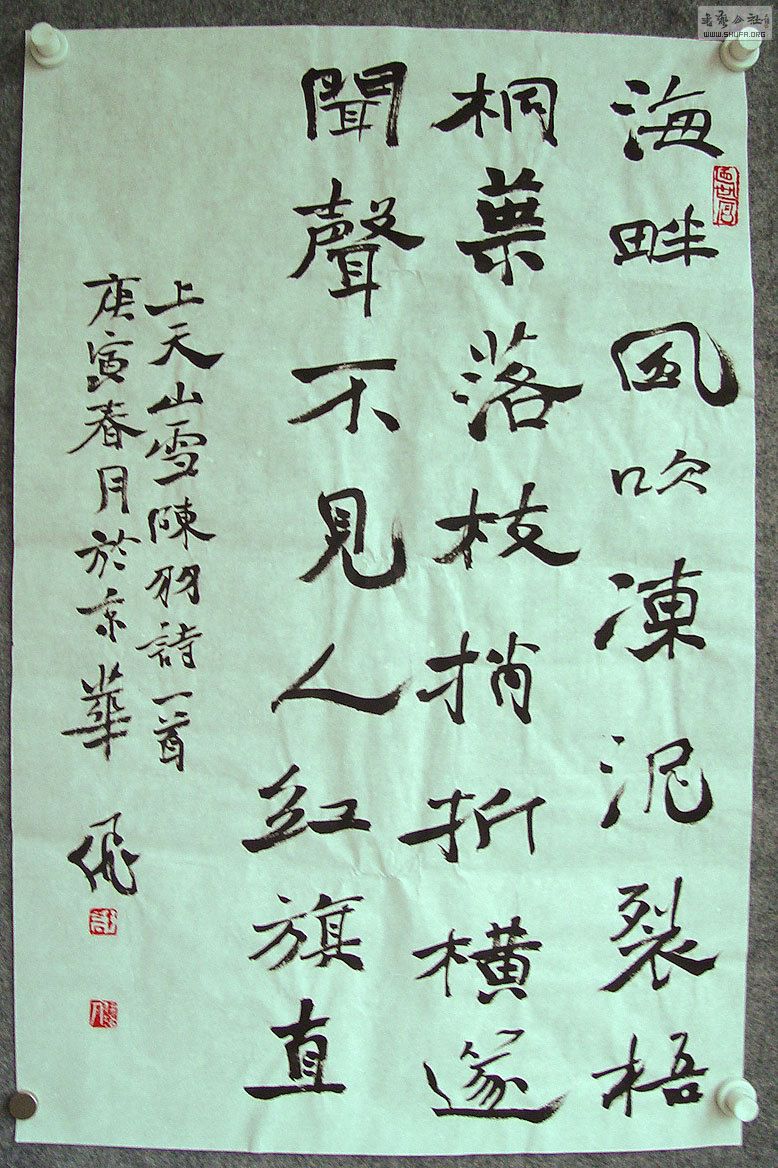 海畔風吹凍泥裂梧
桐葉落枝捎折橫篴
聞聲不見人紅旗直
上天山雪陳羽詩一首
庚寅春月於京華 飛
书艺公社
WWW.SHUFA.ORG